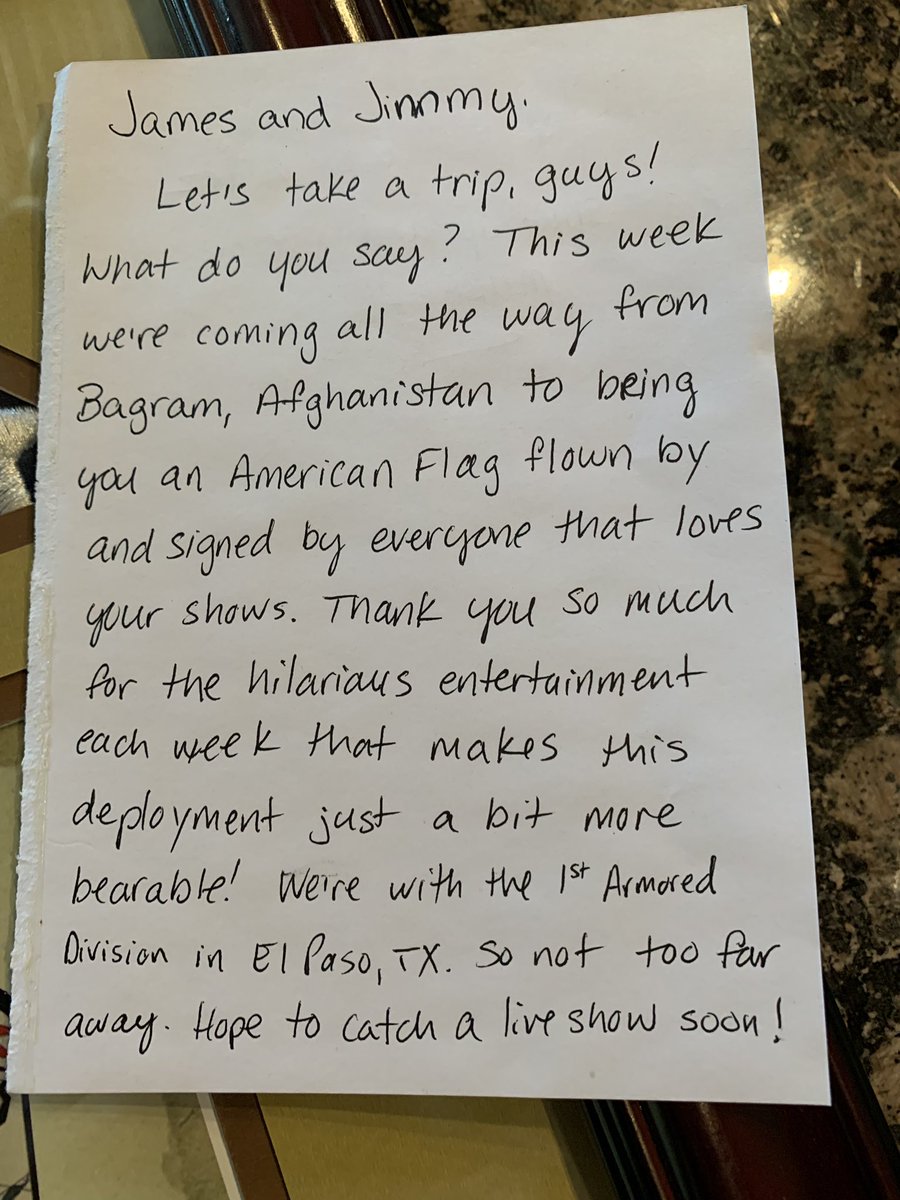 James and Jimmy.
Let's take a trip, guys!
What do you say? This week
we're coming all the way from
Bagram, Afghanistan to being
you an American Flag flown by
and signed by everyone that loves
your shows. Thank you so much
for the hilarious entertainment
each week that makes this
deployment just a bit more
bearable! We're with the 1st Armored
Division in El Paso, TX. So not too far
away. Hope to catch a live show soon!